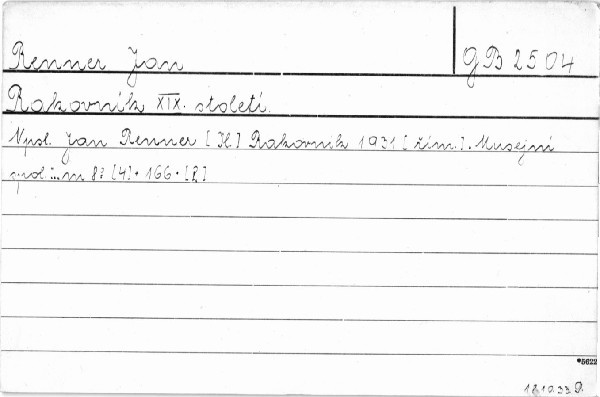 Renner Jan GB 2504
Rakovník XIX. století.
Npsl. Jan Renner [Il.] Rakovník 1931 [řím.]. Musejní
spol. ... m 8° [4] + 166 + [2]
*5622